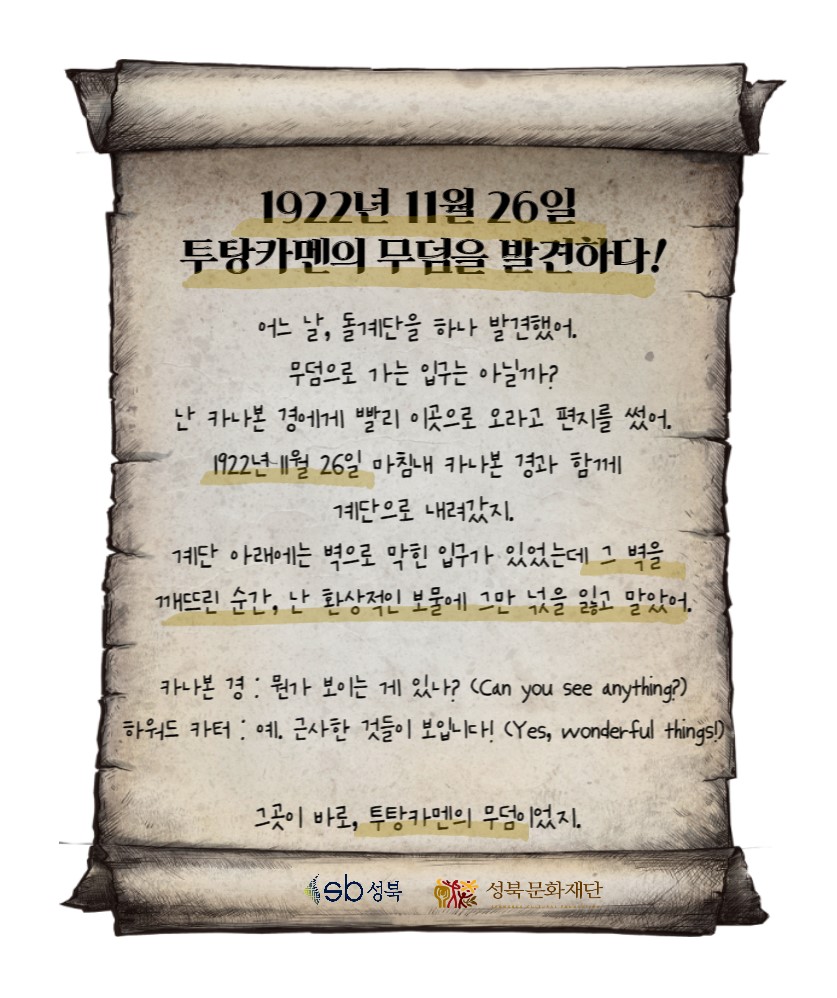 1922년 11월 26일
투탕카멘의 무덤을 발견하다!
어느 날, 돌계단을 하나 발견했어.
무덤으로 가는 입구는 아닐까?
난 카나본 경에게 빨리 이곳으로 오라고 편지를 썼어.
1922년 11월 26일 마침내 카나본 경과 함께
계단으로 내려갔지.
계단 아래에는 벽으로 막힌 입구가 있었는데 그 벽을
깨뜨린 순간, 난 환상적인 보물에 그만 넋을 잃고 말았어.
카나본 경 : 뭔가 보이는 게 있나? (Can you see anything?)
하워드 카터 : 예. 근사한 것들이 보입니다! (Yes, wonderful things!)
그곳이 바로, 투탕카멘의 무덤이었지.
sb성북 성북문화재단